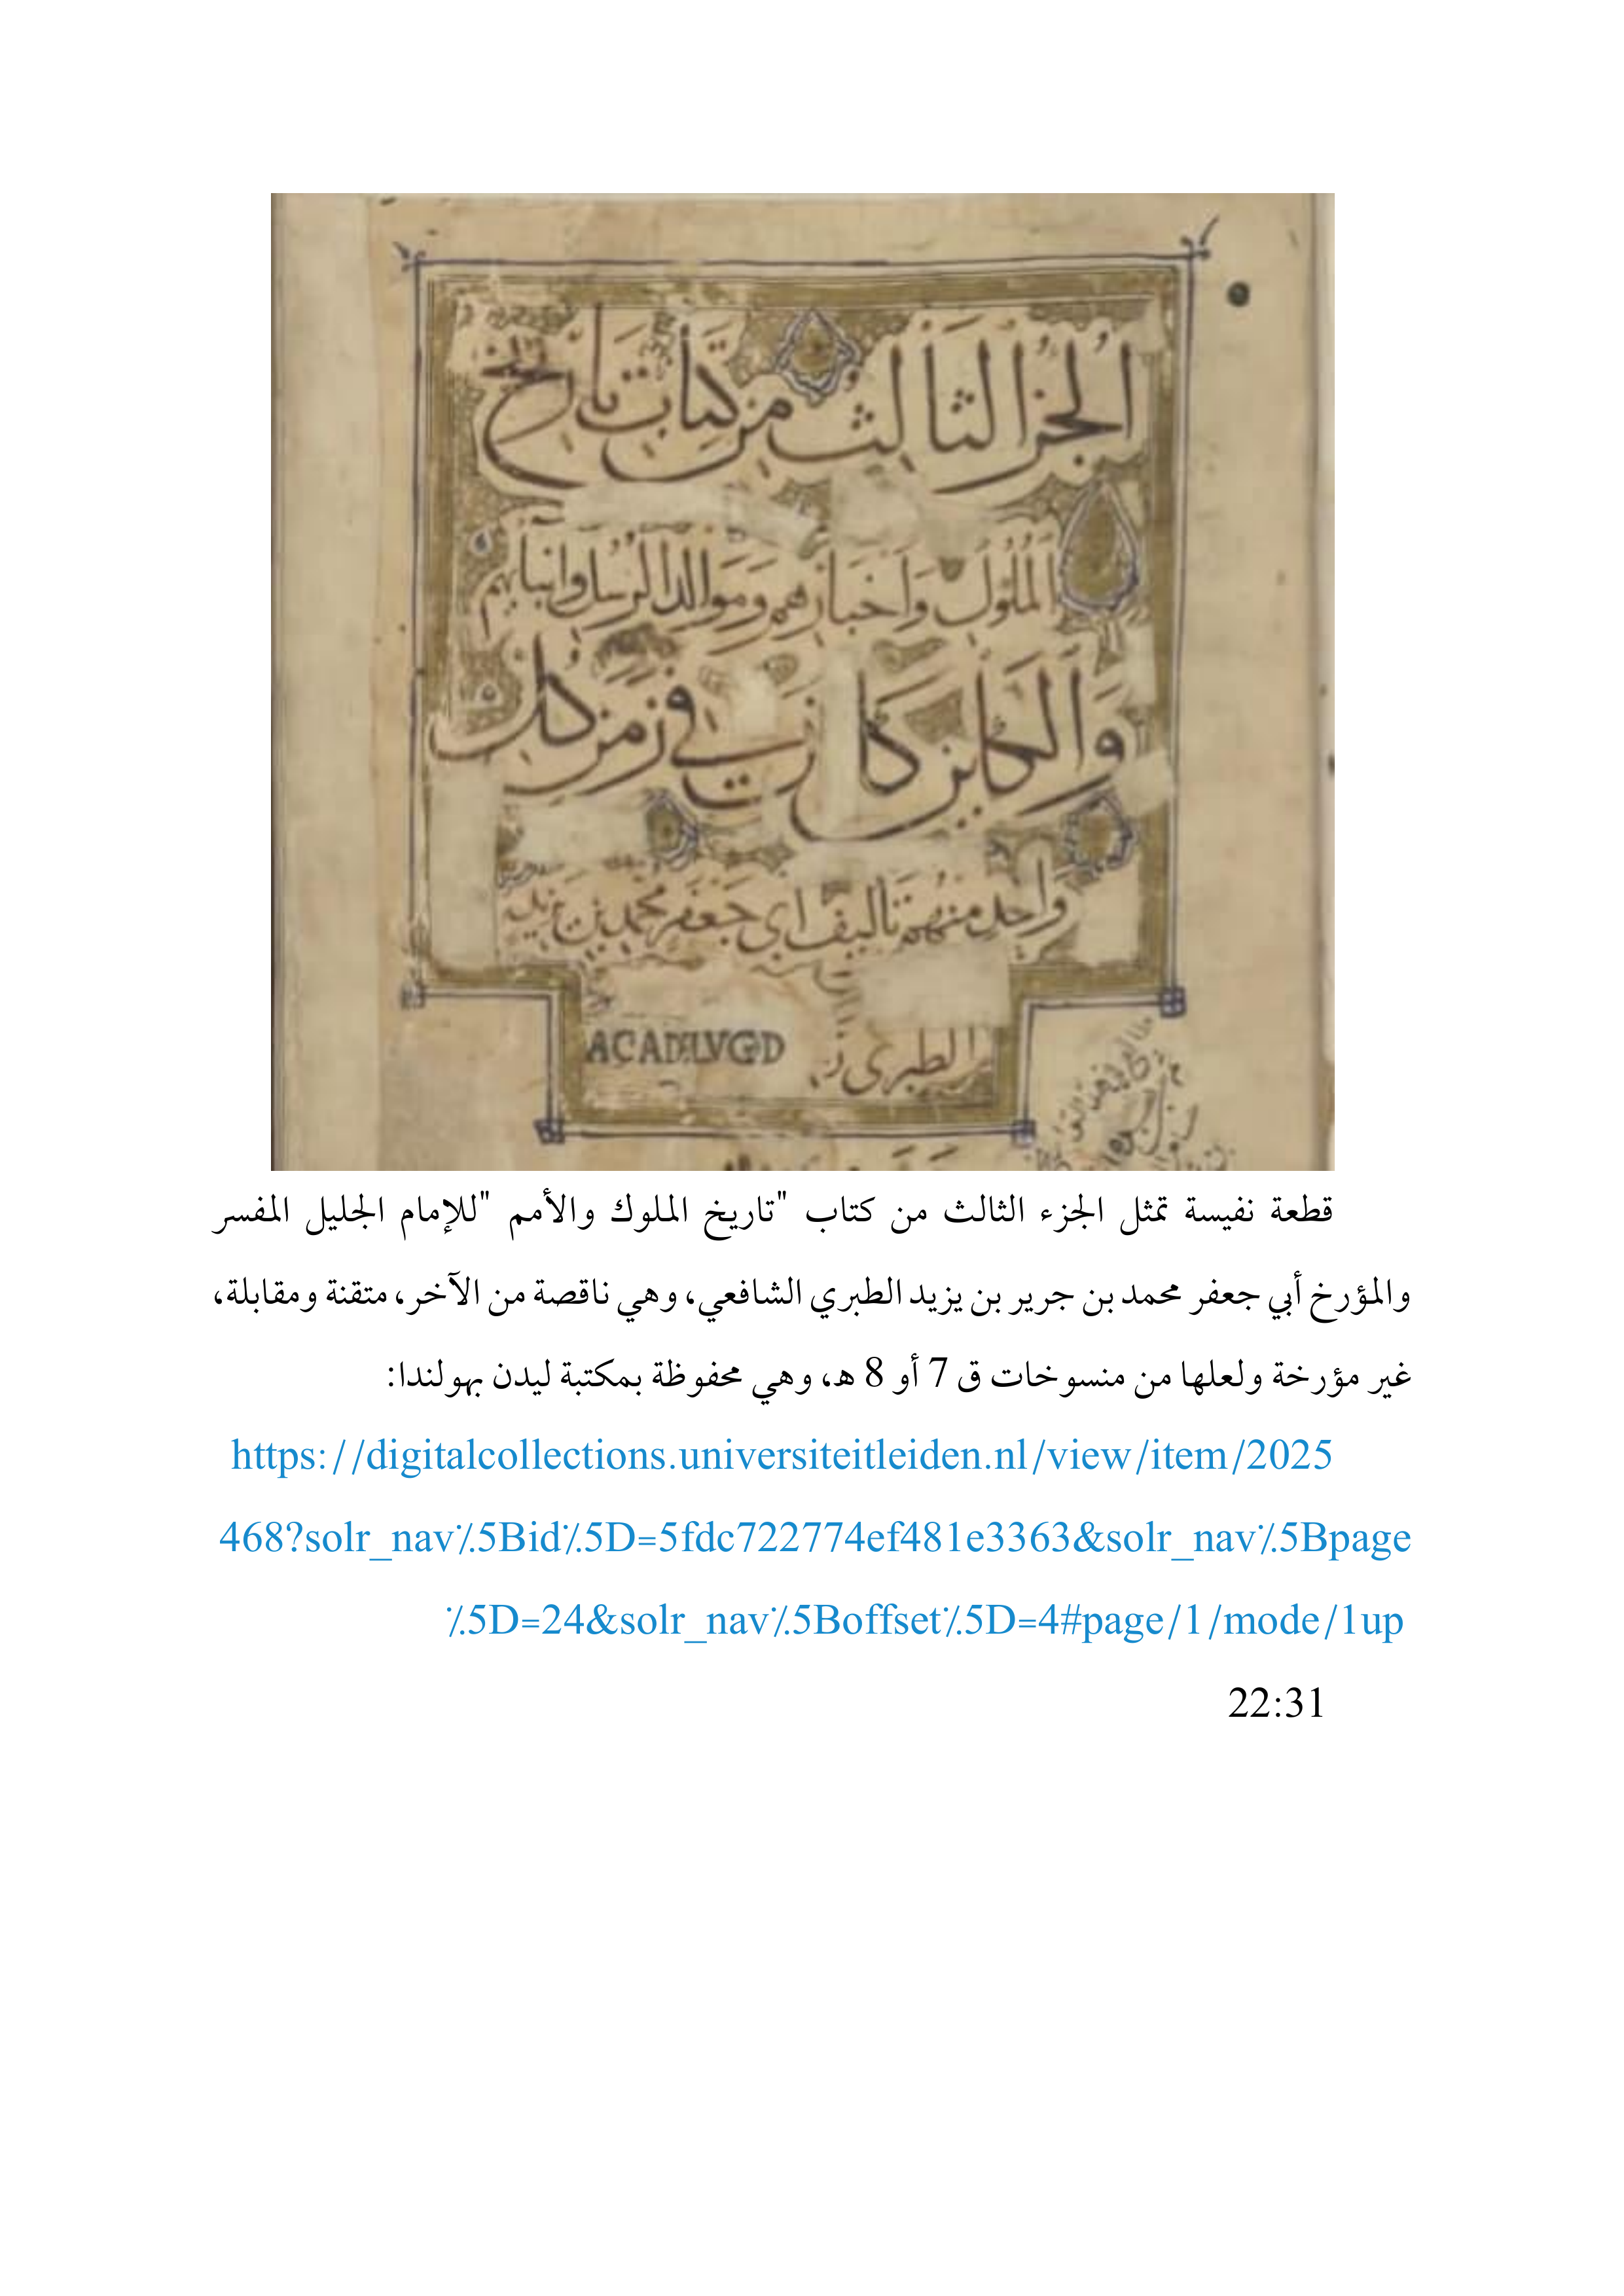 الجزء الثالث من كتاب تاريخ
الملوك واخبارهم وموالد الرسل وانبايهم
والكاين كان في زمن كل
واحد منهم تاليف ابي جعفر محمد بن جرير
الطبري
ACAD LVGD
قطعة نفيسة تمثل الجزء الثالث من كتاب "تاريخ الملوك والأمم "للإمام الجليل المفسر
والمؤرخ أبي جعفر محمد بن جرير بن يزيد الطبري الشافعي، وهي ناقصة من الآخر، متقنة ومقابلة،
غير مؤرخة ولعلها من منسوخات ق 7 أو 8 ه، وهي محفوظة بمكتبة ليدن بهولندا:
https://digitalcollections.universiteitleiden.nl/view/item/2025
468?solr_nav%5Bid%5D=5fdc722774ef481e3363&solr_nav%5Bpage
%5D=24&solr_nav%5Boffset%5D=4#page/1/mode/1up
22:31